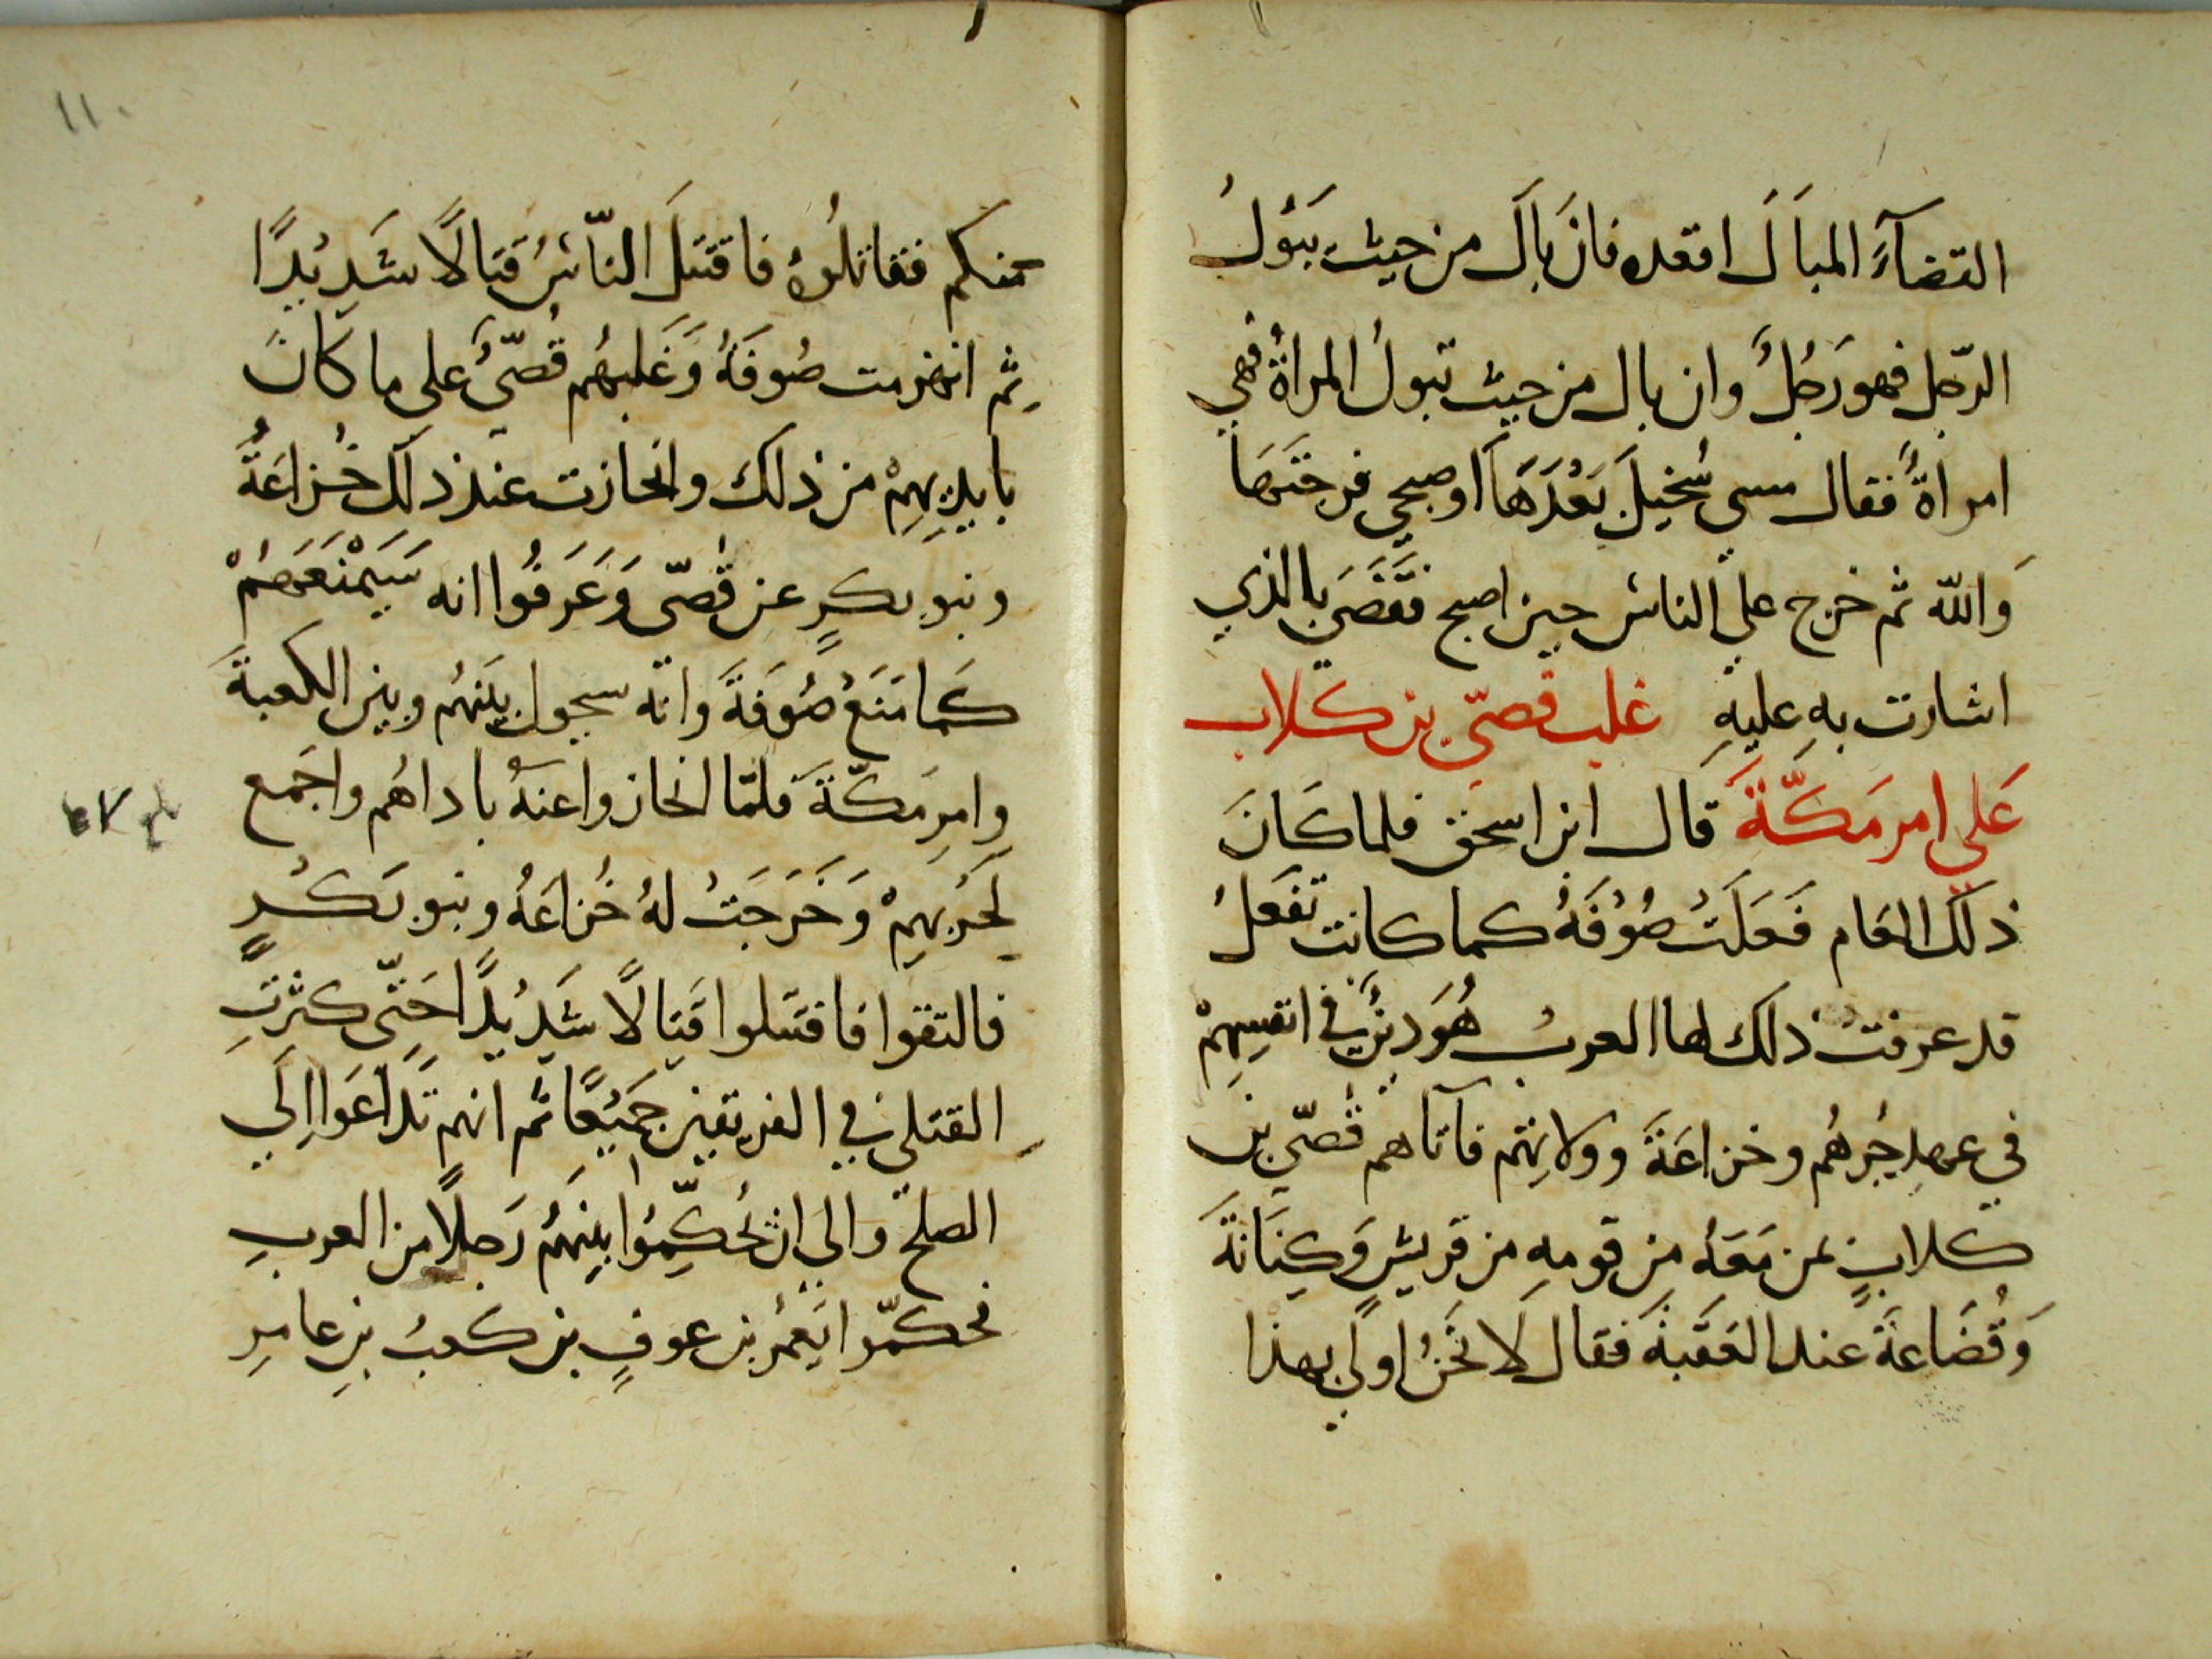 القضآءَ المبَالَ اقعده فانَ بالَ من حيث يَبُولُ
الرّجل فهو رَجُلٌ وان بال من حيث تبولُ المراةُ فهي
امراةٌ فقال مسي سُخَيلَ بَعْدَهَا اوصبحي فرجتَهَا
وَالله ثم خرج علي الناس حين اصبح فقَضَى بالذي
اشارت بهِ عليهِ غلب قصيّ بن كلاب
عَلي امرِ مَكّةَ قال ابن اسحق فلما كَانَ
ذلكَ العَام فَعَلَتْ صُوْفَةُ كما كانت تفعَلُ
قد عرفتْ ذلك لها العربُ هُوَ دِينٌ في انفسِهِمْ
في عهدِ جُرهُم وخزاعَةَ وولايتهم فاتاهم قُصَيّ بن
كلابٍ بمن مَعَهُ من قومهِ من قريشٍ وَكِنَانَةَ
وَقُضَاعَةَ عند العَقَبَةَ فقال لَا نَحْنُ اولَى بهذا
١١٠
منكم فقاتلُوهُ فاقتَتَلَ النّاسُ قتالًا شَدِيْدًا
ثم انهزمت صُوفَةُ وَغَلبهُم قُصَيٌّ على ما كانَ
بايدِيهِمْ من ذلك وانحازت عند ذلكَ خُزاعَةُ
وبنو بكرٍ عن قُصَيّ وَعَرَفُوا انه سَيَمْنَعَهُمْ
كَمَا مَنَعَ صُوَفَةَ وانه سيحول بينَهُم وبين الكعبةَ
وامرِ مَكّةَ فلمّا انحازوا عنهُ باداهُم واجَمع
لحَرْبِهِمْ وَخَرَجَتْ لهُ خُزاعَةُ وبنو بَكْرٍ
فالتقوا فاقتتلوا قتِالًا شَدِيْدًا حَتّى كثرتِ
القتلي في الفريقين جَمِيْعًا ثم انهم تَدَاعَوا الَي
الصلح والي ان يُحَكِّمُوا بينَهُمْ رَجلًا من العربِ
فحكمّوا يَعمُر بن عوفٍ بن كعبُ بنِ عامرِ